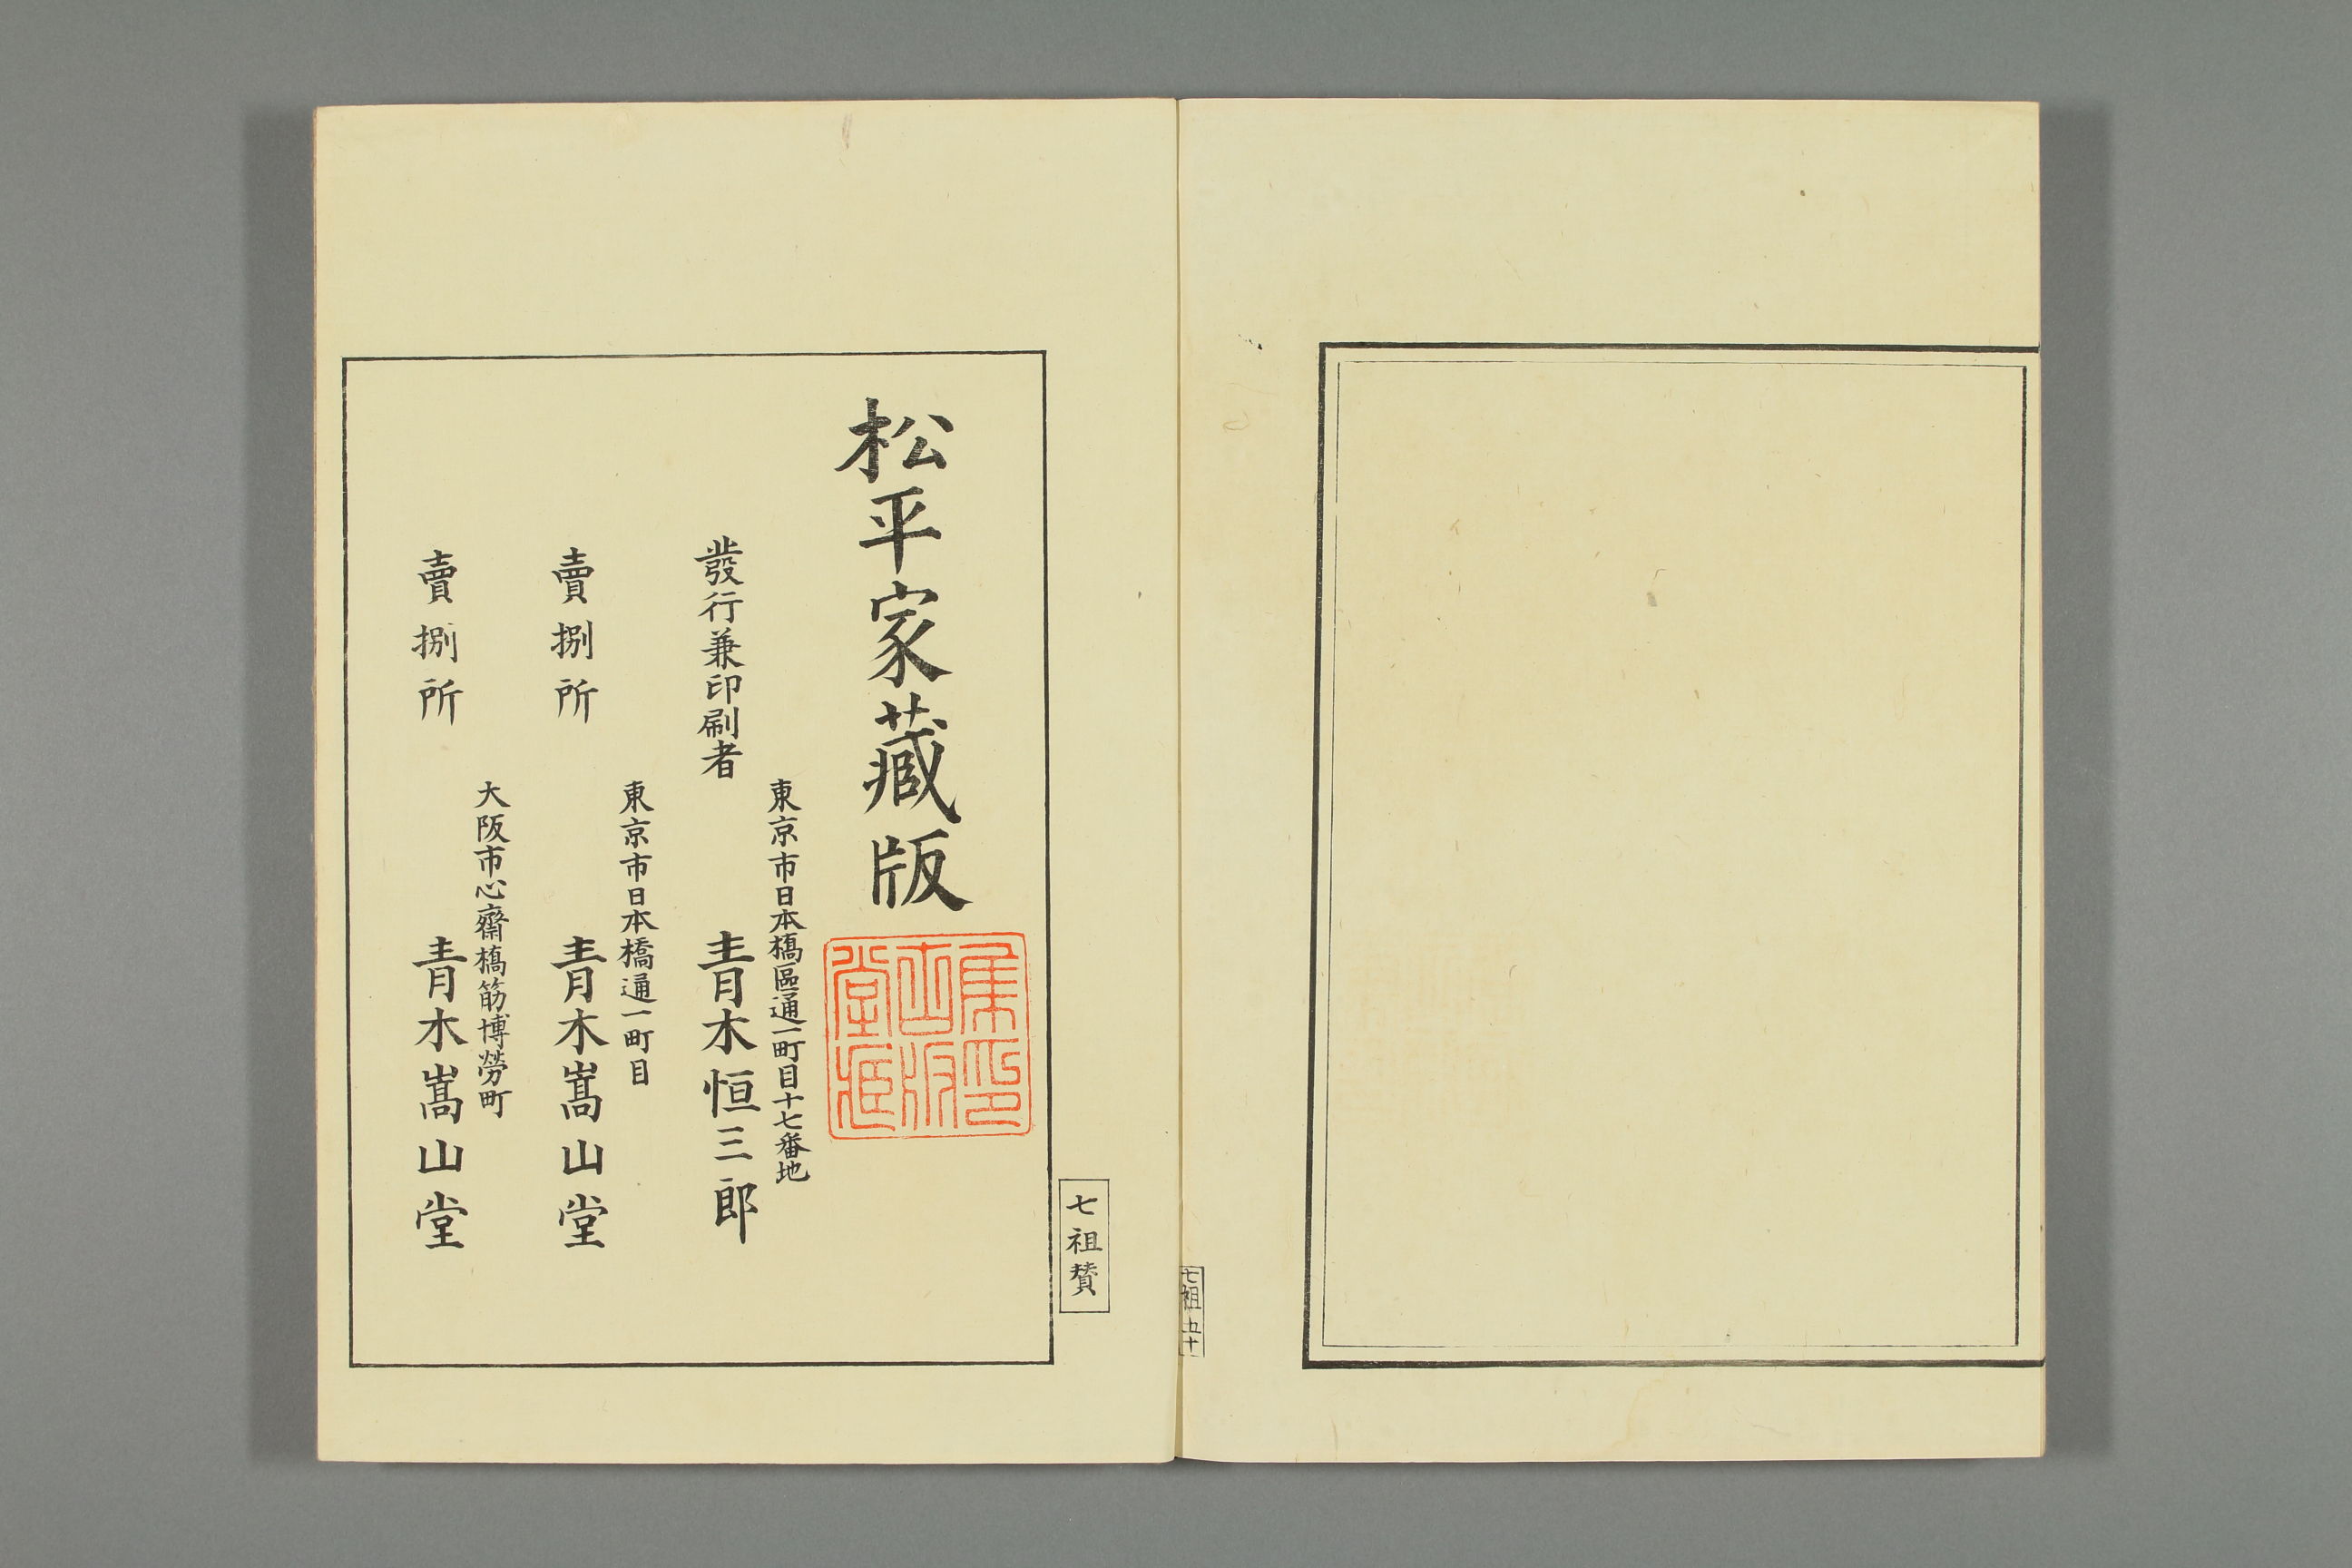 七祖 五十
七祖賛
松平家藏版
發行兼印刷者
東京市日本橋區通一町目十七番地
青木恒三郎
賣捌所
東京市日本橋通一町目
青木嵩山堂
賣捌所
大阪市心齋橋筋博勞町
青木嵩山堂